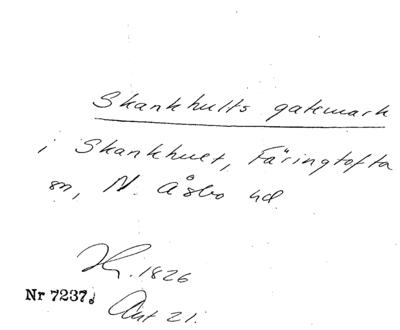 Skankhults gatemark
i Skankhult, Färingtofta
sn, N. Åsbo hd
Kr. 1826
Nr 7237.
Akt 21.